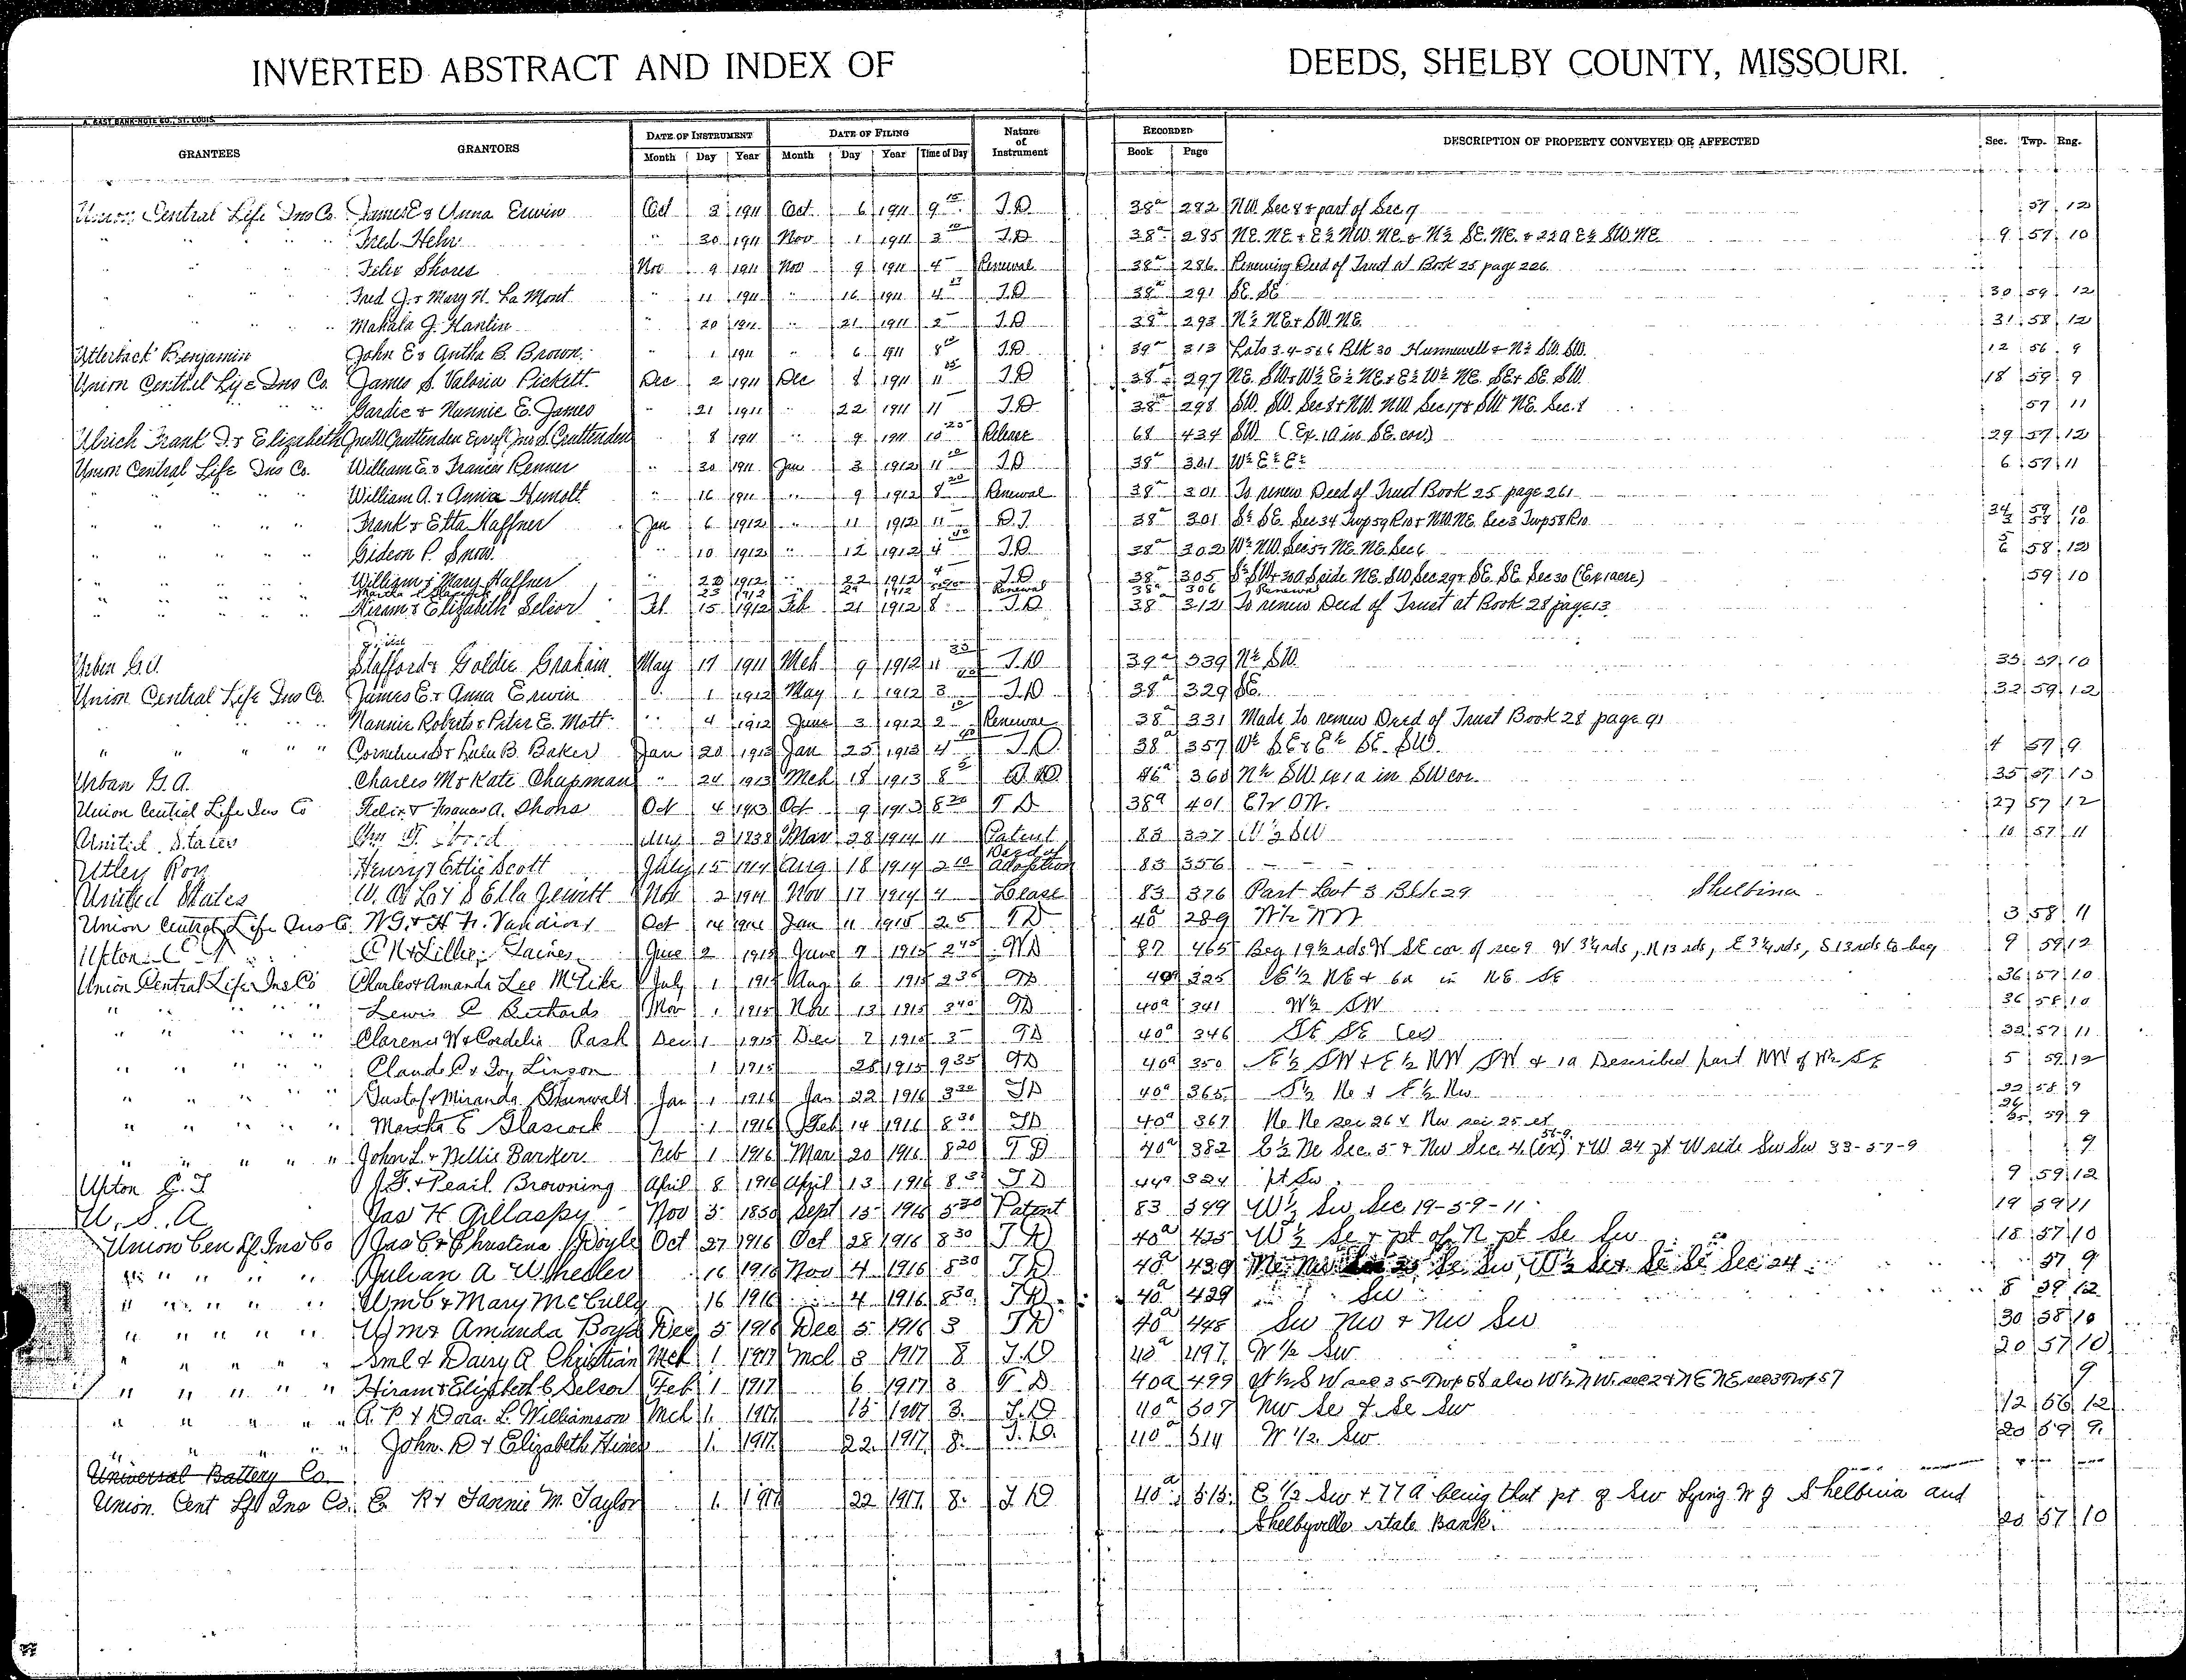 INVERTED ABSTRACT AND INDEX OF DEEDS, SHELBY COUNTY, MISSOURI.
GRANTEES GRANTORS DATE OF INSTRUMENT DATE OF FILING Nature of Instrument RECORDED DESCRIPTION OF PROPERTY CONVEYED OR AFFECTED Sec. Twp. Rng.
Month Day Year Month Day Year Time of Day Book Page
Union Central Life Ins Co. James E & Anna Erwin Oct 3 1911 Oct 6 1911 9 15 T.D. 38a 282 NW. Sec 8 & part of Sec 9 57 12
" " " " Fred Hehr " 30 1911 Nov 1 1911 3 T.D 38a 285 NE. NE. & E½ NW. NE. & N½ SE. NE. & 22a E½ SW. NE. 9 57 10
" " " " Felix Shores Nov 9 1911 Nov 9 1911 4 Renewal 38a 286 Renewing Deed of Trust at Book 25 page 226
" " " " Fred J. & Mary N. La Mont " 11 1911 " 16 1911 4 T.D 38a 291 SE. SE 30 59 12
" " " " Mahala J. Hanlin " 20 1911 " 21 1911 2 T.D 38a 293 N½ NE & SW. NE. 31 58 12
Utterback Benjamin John E & Antha B. Brown. " 1 1911 " 6 1911 8 T.D. 39a 313 Lots 3-4-5 & 6 Blk 30 Hunnewell & N½ SW. SW. 12 56 9
Union Central Life Ins Co. James S. Valoria Pickett. Dec 2 1911 Dec 8 1911 11 T.D 38a 297 NE. SW & W½ E½ NE & E½ W½ NE. SE & SE. SW. 18 59 9
" " Gardie & Nannie E. James " 21 1911 " 22 1911 11 T.D 38a 298 SW. SW. Sec 8 & NW. NW. Sec 17 & SW NE. Sec. 8 57 11
Ulrich Frank D. & Elizabeth Jno W Cruttenden Exr of Jno S. Cruttenden " 8 1911 " 9 1911 10 25 Release 68 434 SW (Ex. 1a in SE. cor.) 29 57 12
Union Central Life Ins Co. William E. & Frances Renner " 30 1911 Jan 3 1912 11 T.D 38a 301 W½ E½ E½ 6 57 11
William A. & Annia Hunolt " 16 1911 " 9 1912 8 20 Renewal 38a 301 To renew Deed of Trust Book 25 page 261
" " " " Frank & Etta Haffner Jan 6 1912 " 11 1912 11 D.T. 38a 301 S½ SE. Sec 34 Twp 59 R10 & NW. NE. Sec 3 Twp 58 R10 34 59 10 3 58 10
" " " " Gideon P. Snow. " 10 1912 " 12 1912 4 T.D. 38a 302 W½ NW. Sec 5 & NE. NE. Sec 6 58 12
" " " " William & Mary Haffner " 20 1912 " 22 1912 4 T.D 38a 305 S½ SW & 30a S side NE. SW Sec 29 & SE. SE. Sec 30 (Ex 1 acre) 59 10
Martha 23 1912 Renewal 38a 306 Renewal
" " " " Hiram & Elizabeth Selsor Feb 15 1912 Feb 21 1912 8 T.D. 38 312 To renew Deed of Trust at Book 28 page 13
Urban G.A. Stafford & Goldie Graham May 17 1911 Mch 9 1912 11 T.D 39a 339 N½ SW. 35 57 10
Union Central Life Ins Co. James E. & Anna Erwin " 1 1912 May 1 1912 3 T.D 38a 329 SE. 32 59 12
" " Nannie Roberts & Peter E. Mott " 4 1912 June 3 1912 2 Renewal 38a 331 Made to renew Deed of Trust Book 28 page 91
" " " " " Cornelius D & Lulu B. Baker Jan 20 1913 Jan 25 1913 4 T.D. 38a 357 W½ SE & E½ SE. SW. 4 57 9
Urban G.A. Charles M & Kate Chapman " 24 1913 Mch 18 1913 8 W.D 46a 360 N½ SW ex 1a in SW cor. 35 57 10
Union Central Life Ins Co Felix & Frances A. Shores Oct 4 1913 Oct 9 1913 8 20 T D 38a 401 27 57 12
United States Aug 2 1838 Mar 28 1914 11 Patent 83 327 W½ SW 10 57 11
Utley Roy Henry & Ettie Scott July 15 1914 Aug 18 1914 2 10 Deed of Adoption 83 356 - - - -
United States W. O. L & Ella Jewitt Nov 2 1914 Nov 17 1914 4 Lease 83 376 Part Lot 3 Blk 29 Shelbina
Union Central Life Ins Co. W G. & H. F. Vandiver Oct 14 1914 Jan 11 1915 2 5 T D 40a 289 W½ NW 3 58 11
Upton C T C N & Lillie Gaines June 2 1915 June 7 1915 2 45 WD 87 465 Beg 19½ rds W SE cor of sec 9 W 3¾ rds, N 13 rds, E 3¾ rds, S 13 rds to beg 9 59 12
Union Central Life Ins Co Charles & Amanda Lee McPike July 1 1915 Aug 6 1915 2 35 TD 40a 325 E½ NE & 6a in NE SE 36 57 10
" " " " Lewis C Richards Nov 1 1915 Nov 13 1915 3 40 TD 40a 341 W½ SW 36 58 10
" " " " Clarence W & Cordelia Rash Dec 1 1915 Dec 2 1915 3 TD 40a 346 SE SE (ex) 32 57 11
" " " " Claude C & Ivy Linson 1 1915 28 1915 9 35 TD 40a 350 E½ SW & E½ NW SW & 1a Described part NW of W½ SE 5 59 12
" " " " Gustof & Miranda Grunwalt Jan 1 1916 Jan 22 1916 3 30 TD 40a 365 S½ Ne & E½ Nw 22 58 9
" " " " " Martha E Glascock 1 1916 Feb 14 1916 8 30 TD 40a 367 Ne Ne sec 26 & Nw sec 25 ex 26 25 59 9
" " " " " John L. & Nellie Barker Feb 1 1916 Mar 20 1916 8 20 T D 40a 382 E½ Ne Sec. 5 & Nw Sec 4 (ex) 56-9 & W 24 pt W side Sw Sw 33-57-9 9
Upton C. T J. F. & Pearl Browning April 8 1916 April 13 1916 8 30 T D 44a 324 pt Sw. 9 59 12
U. S. A Jas H Gillaspy Nov 3 1850 Sept 15 1916 5 30 Patent 83 399 W½ Sw Sec 19-59-11 19 59 11
Union Cen Lf Ins Co Jas C & Christina Doyle Oct 27 1916 Oct 28 1916 8 30 T D 40a 425 W½ Se & pt of N pt Se Sw 18 57 10
" " " " " Julian A Wheeler 16 1916 Nov 4 1916 8 30 T D 40a 430 Se Sw, W½ Se & Se Se Sec 24 57 9
" " " " " Wm C & Mary McCully 16 1916 4 1916 8 30 T D 40a 429 Sw 8 59 12
" " " " " Wm & Amanda Boyd Dec 5 1916 Dec 5 1916 3 T D 40a 448 Sw Nw & Nw Sw 30 58 10
" " " " " Saml & Daisy A Christian Mch 1 1917 Mch 3 1917 8 T.D 40a 497 W½ Sw 20 57 10
" " " " " Hiram & Elizabeth C Selsor Feb 1 1917 6 1917 3 T. D 40a 499 W½ S W sec 35 Twp 58 also W½ N W. sec 2 & NE NE sec 3 Twp 57 9
" " " " " A. P & Dora L. Williamson Mch 1 1917 15 1917 3. T.D 40a 507 Nw Se & Se Sw 12 56 12
" " " " John. D & Elizabeth Hines 1. 1917 22 1917 8. T.D. 40a 514 W ½. Sw. 20 59 9.
Universal Battery Co.
Union. Cent Lf Ins Co. E R & Fannie M. Taylor 1. 1917 22 1917. 8. T D 40a 515. E ½ Sw & 77 a being that pt of Sw lying N of Shelbina and
Shelbyville State Bank. 20 57 10